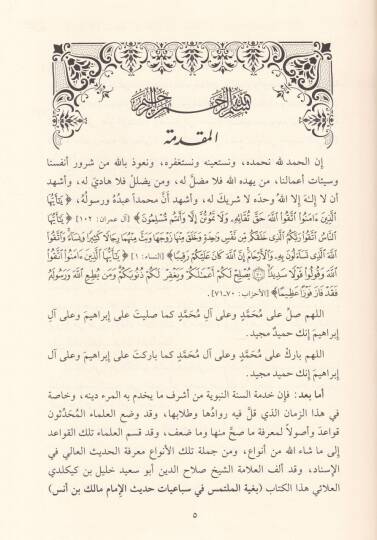 بسم الله الرحمن الرحيم
المقدمة
إن الحمد لله نحمده، ونستعينه ونستغفره، ونعوذ بالله من شرور أنفسنا
وسيئات أعمالنا، من يهده الله فلا مضلَّ له، ومن يضللْ فلا هاديَ له، وأشهد
أن لا إلـٰه إلا اللهُ وحدَه لا شريكَ له، وأشهد أنَّ محمداً عبدُه ورسولُه، ﴿يَٰٓأَيُّهَا
ٱلَّذِينَ ءَامَنُوا۟ ٱتَّقُوا۟ ٱللَّهَ حَقَّ تُقَاتِهِۦ وَلَا تَمُوتُنَّ إِلَّا وَأَنتُم مُّسْلِمُونَ﴾ [آل عمران: ١٠٢] ﴿يَٰٓأَيُّهَا
ٱلنَّاسُ ٱتَّقُوا۟ رَبَّكُمُ ٱلَّذِى خَلَقَكُم مِّن نَّفْسٍ وَٰحِدَةٍ وَخَلَقَ مِنْهَا زَوْجَهَا وَبَثَّ مِنْهُمَا رِجَالًا كَثِيرًا وَنِسَآءً وَٱتَّقُوا۟
ٱللَّهَ ٱلَّذِى تَسَآءَلُونَ بِهِۦ وَٱلْأَرْحَامَ إِنَّ ٱللَّهَ كَانَ عَلَيْكُمْ رَقِيبًا﴾ [النساء: ١] ﴿يَٰٓأَيُّهَا ٱلَّذِينَ ءَامَنُوا۟ ٱتَّقُوا۟
ٱللَّهَ وَقُولُوا۟ قَوْلًا سَدِيدًا ۝٧٠ يُصْلِحْ لَكُمْ أَعْمَٰلَكُمْ وَيَغْفِرْ لَكُمْ ذُنُوبَكُمْ وَمَن يُطِعِ ٱللَّهَ وَرَسُولَهُۥ
فَقَدْ فَازَ فَوْزًا عَظِيمًا﴾ [الأحزاب: ٧٠-٧١].
اللهم صلِّ على مُحَمَّدٍ وعلى آلِ مُحَمَّدٍ كما صليتَ على إبراهيمَ وعلى آلِ
إبراهيمَ إنك حميدٌ مجيد.
اللهم باركْ على مُحَمَّدٍ وعلى آلِ مُحَمَّدٍ كما باركتَ على إبراهيمَ وعلى آلِ
إبراهيمَ إنك حميد مجيد.
أما بعد: فإن خدمة السنة النبوية من أشرف ما يخدم به المرء دينه، وخاصة
في هذا الزمان الذي قلَّ فيه روادُها وطلابها، وقد وضع العلماء المُحَدِّثون
قواعدَ وأصولاً لمعرفة ما صحَّ منها وما ضعف، وقد قسم العلماء تلك القواعد
إلى ما شاء الله من أنواع، ومن جملة تلك الأنواع معرفة الحديث العالي في
الإسناد، وقد ألف العلامة الشيخ صلاح الدين أبو سعيد خليل بن كيكلدي
العلائي هذا الكتاب (بغية الملتمس في سباعيات حديث الإمام مالك بن أنس)
٥